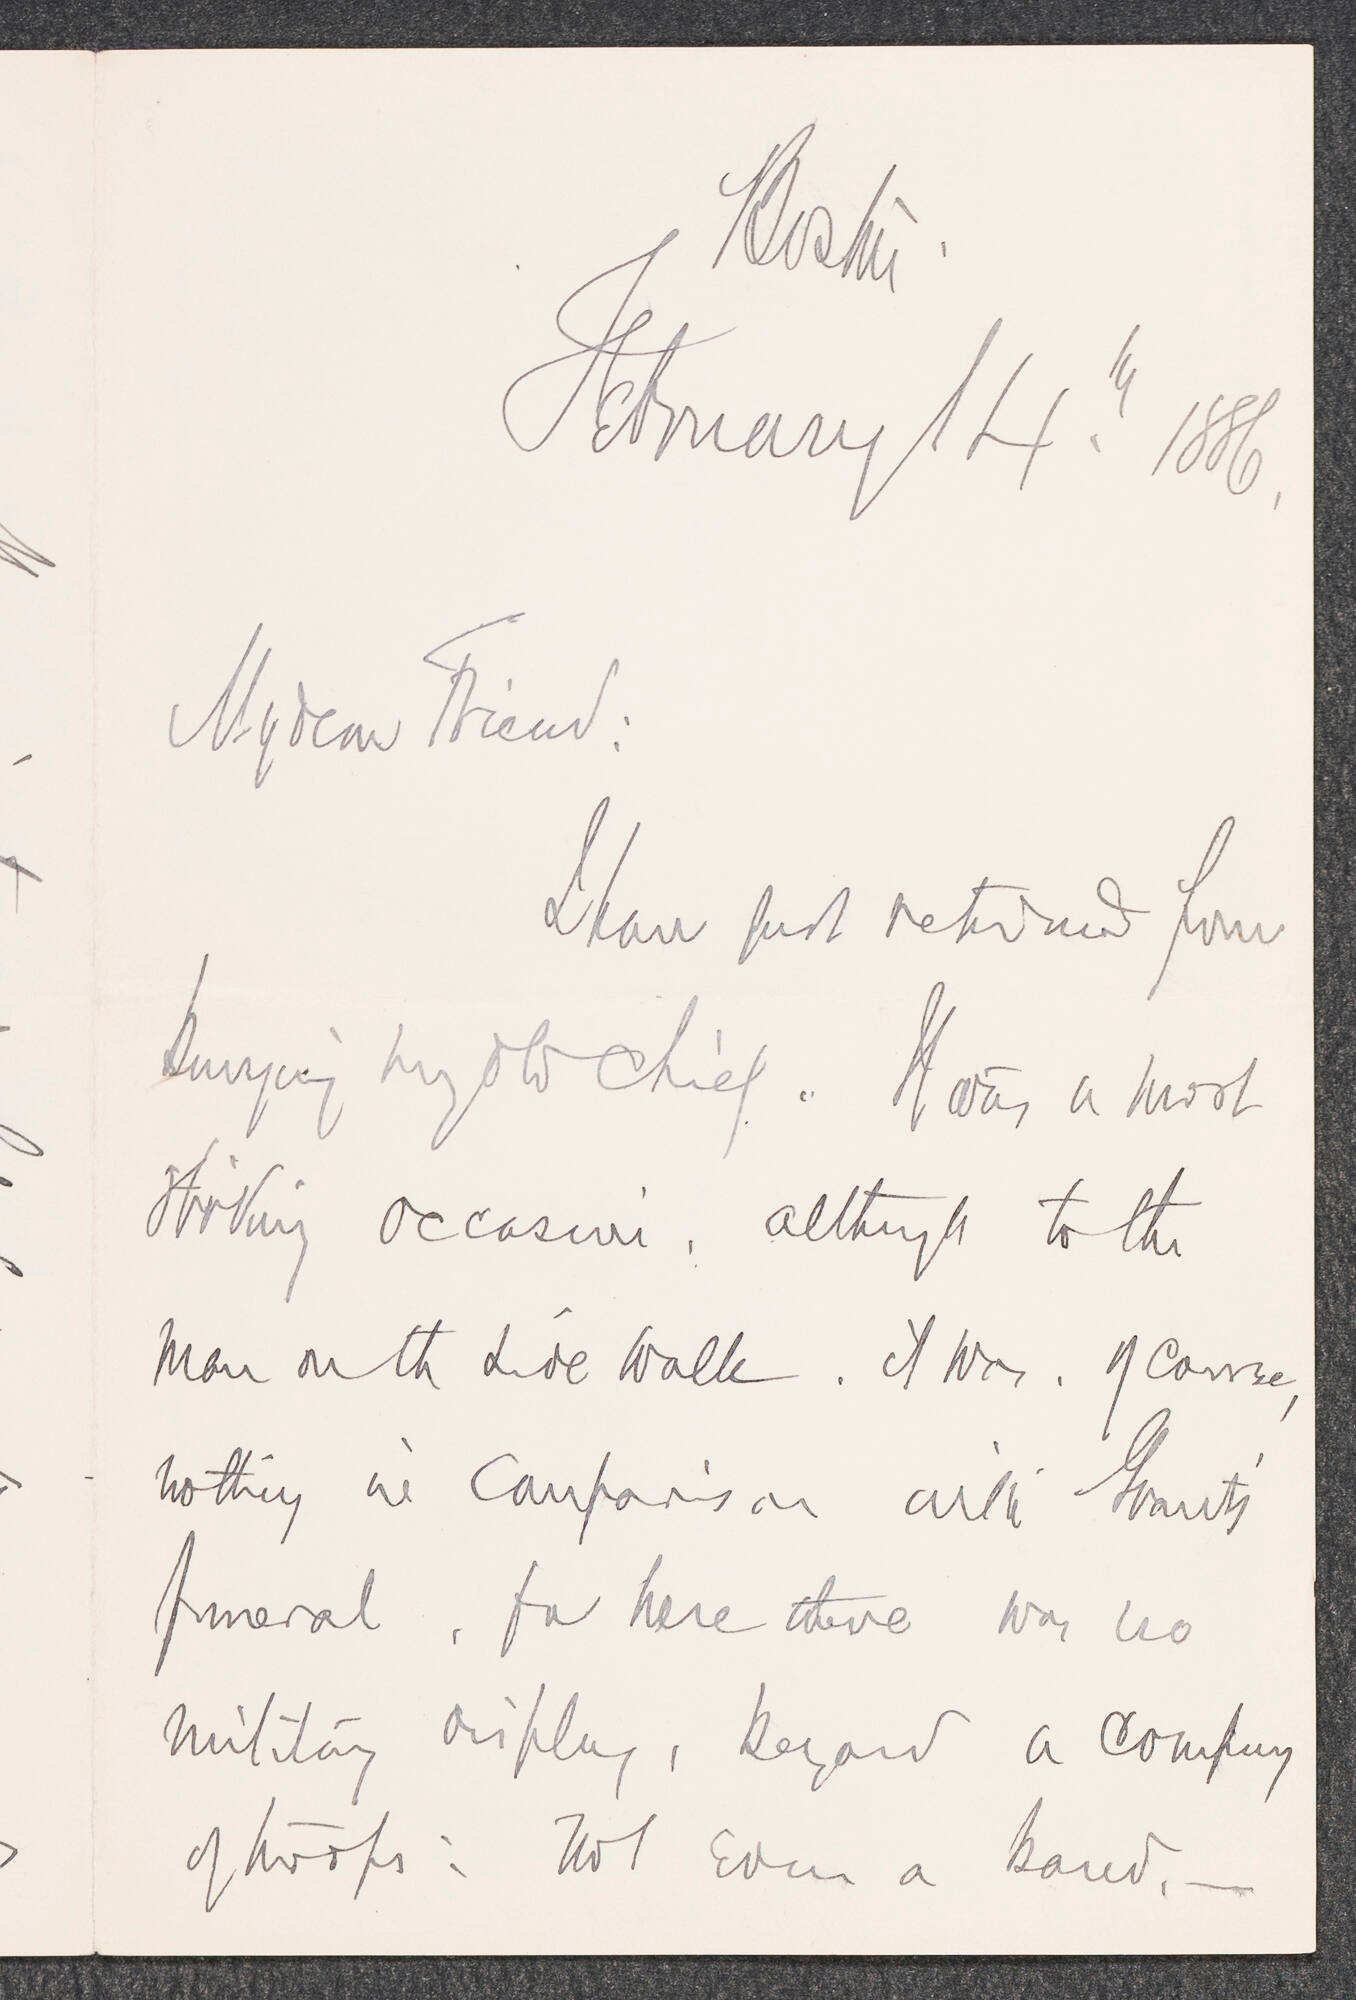 Boston.
February 14th. 1886.
My dear Friend:
I have just returned from
burying my old Chief. It was a most
striking occasion, although to the
man on the sidewalk. it was. of course,
nothing in comparison with Grant's
funeral, for here there was no
military display, beyond a company
of troops: not even a band. —